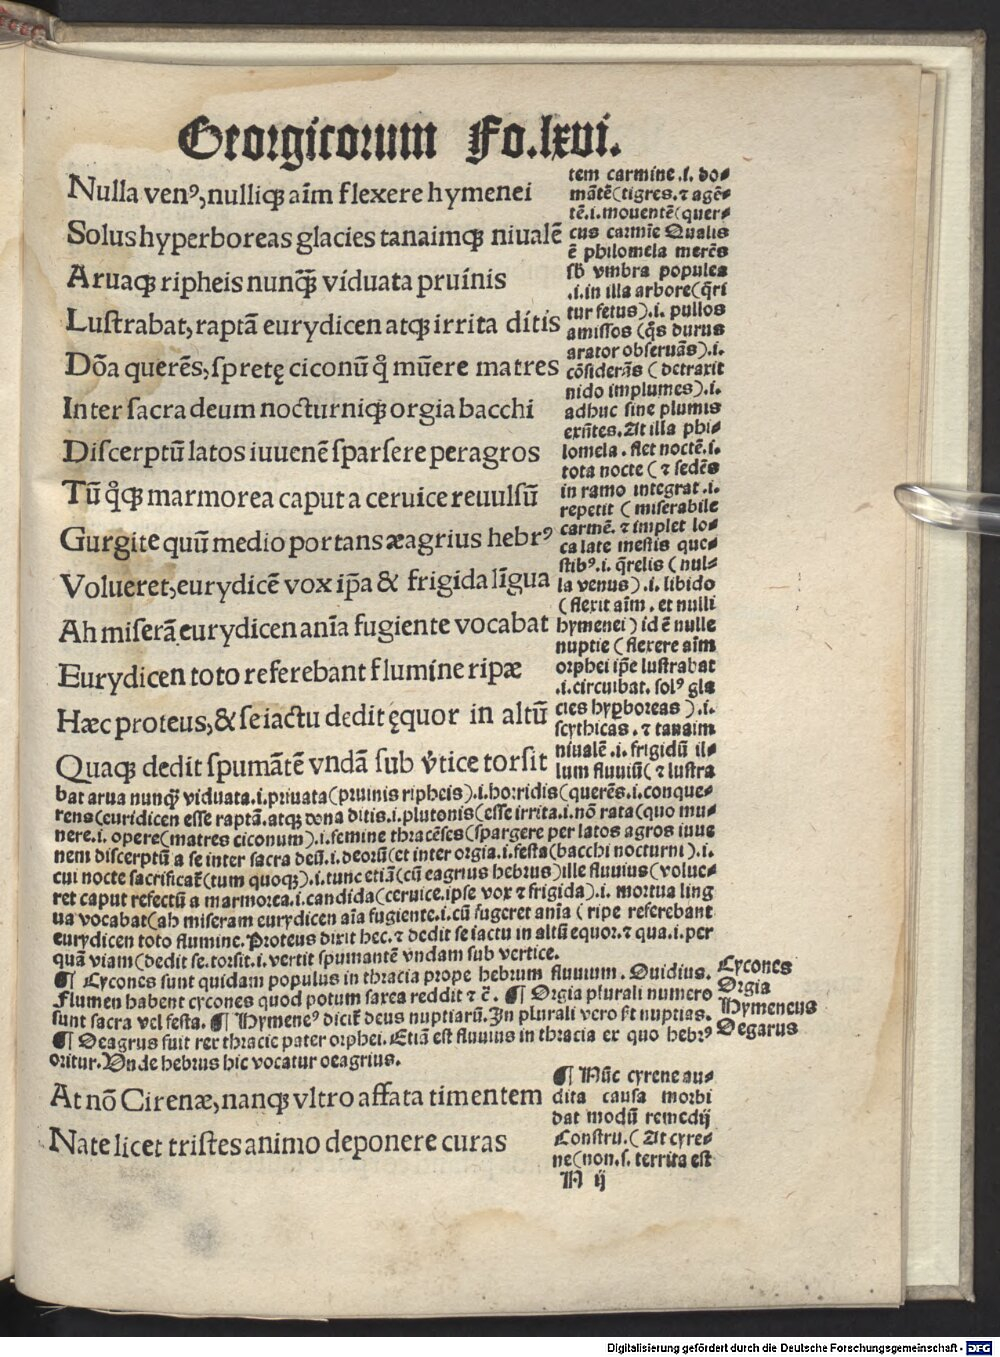 Georgicorum Fo.lxvi.
Nulla venꝰ,nulliqꝫ aīm flexere hymenei
Solus hyperboreas glacies tanaimqꝫ niualē
Aruaqꝫ ripheis nunq̄ȝ viduata pruinis
Lustrabat,raptā eurydicen atqꝫ irrita ditis
Dōa querēs,spretę ciconū q̊ mūere matres
Inter sacra deum nocturniqꝫ orgia bacchi
Discerptū latos iuuenē sparsere per agros
Tū q̊qꝫ marmorea caput a ceruice reuulsū
Gurgite quū medio portans æagrius hebrꝰ
Volueret,eurydicē vox ip̄a & frigida līgua
Ah miserā eurydicen anīa fugiente vocabat
Eurydicen toto referebant flumine ripæ
Hæc proteus,& se iactu dedit ęquor in altū
Quaqꝫ dedit spumātē vndā sub v̓tice torsit
tem carmine .i. do⸗
mātē(tigres.⁊ agē⸗
tē.i.mouentē(quer⸗
cus carmīe Qualis
ē philomela merēs
sb̄ vmbra populea
.i.in illa arbore(q̄ri
tur fetus).i. pullos
amissos (q̄s durus
arator obseruās).i.
cōsiderās ( detraxit
nido implumes).i.
adhuc sine plumis
exn̄tes.At illa phi⸗
lomela . flet noctē.i.
tota nocte ( ⁊ sedēs
in ramo integrat .i.
repetit ( miserabile
carmē. ⁊ implet lo⸗
ca late mestis que⸗
stibꝰ.i. q̄relis ( nul⸗
la venus ) .i. libido
( flexit aīm . et nulli
hymenei ) id ē nulle
nuptie ( flexere aīm
orphei ip̄e lustrabat
.i.circuibat. solꝰ gla
cies hyꝑboreas ) .i.
scythicas . ⁊ tanaim
niualē .i. frigidū il⸗
lum fluuiū( ⁊ lustra
bat arua nunq̄ȝ viduata.i.priuata(pruinis ripheis).i.horridis(querēs.i.conque⸗
rens(euridicen esse raptā.atqꝫ dona ditis.i.plutonis(esse irrita.i.nō rata(quo mu⸗
nere.i. opere(matres ciconum).i.femine thracēses(spargere per latos agros iuue
nem discerptū a se inter sacra deū.i.deorū(et inter orgia.i.festa(bacchi nocturni).i.
cui nocte sacrificat̄(tum quoqꝫ).i.tunc etiā(cū eagrius hebrus)ille fluuius(volue⸗
ret caput refectū a marmorea.i.candida(ceruice.ipse vox ⁊ frigida).i. mortua ling
ua vocabat(ah miseram eurydicen aīa fugiente.i.cū fugeret anīa ( ripe referebant
eurydicen toto flumine.Proteus dixit hec.⁊ dedit se iactu in altū equor.⁊ qua.i.per
quā viam(dedit se.torsit.i.vertit spumantē vndam sub vertice.
¶ Cycones sunt quidam populus in thracia prope hebrum fluuium. Ouidius.
Flumen habent cycones quod potum saxea reddit ⁊ c̄. ¶ Orgia plurali numero
sunt sacra vel festa. ¶ Hymenꝰ dicit̄ deus nuptiarū.In plurali vero st̄ nuptias.
¶ Oeagrus fuit rex thracie pater orphei.Etiā est fluuius in thracia ex quo hebrꝰ
oritur.Vnde hebrus hic vocatur oeagrius.
Cycones
Orgia
Hymeneus
Oegarus
At nō Cirenæ,nanqꝫ vltro affata timentem
Nate licet tristes animo deponere curas
¶ Nūc cyrene au⸗
dita causa morbi
dat modū remedij
Constru.( At cyre⸗
ne(non.s. territa est
N ij
Digitalisierung gefördert durch die Deutsche Forschungsgemeinschaft - DFG